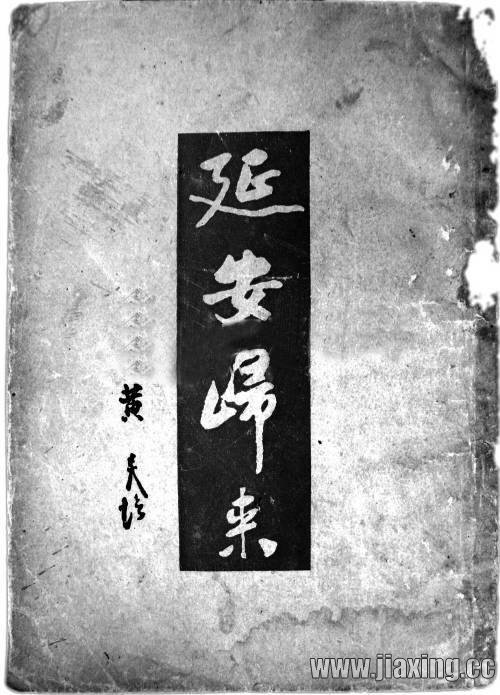 延安歸来
黄炎培
www.jiaxing.cc